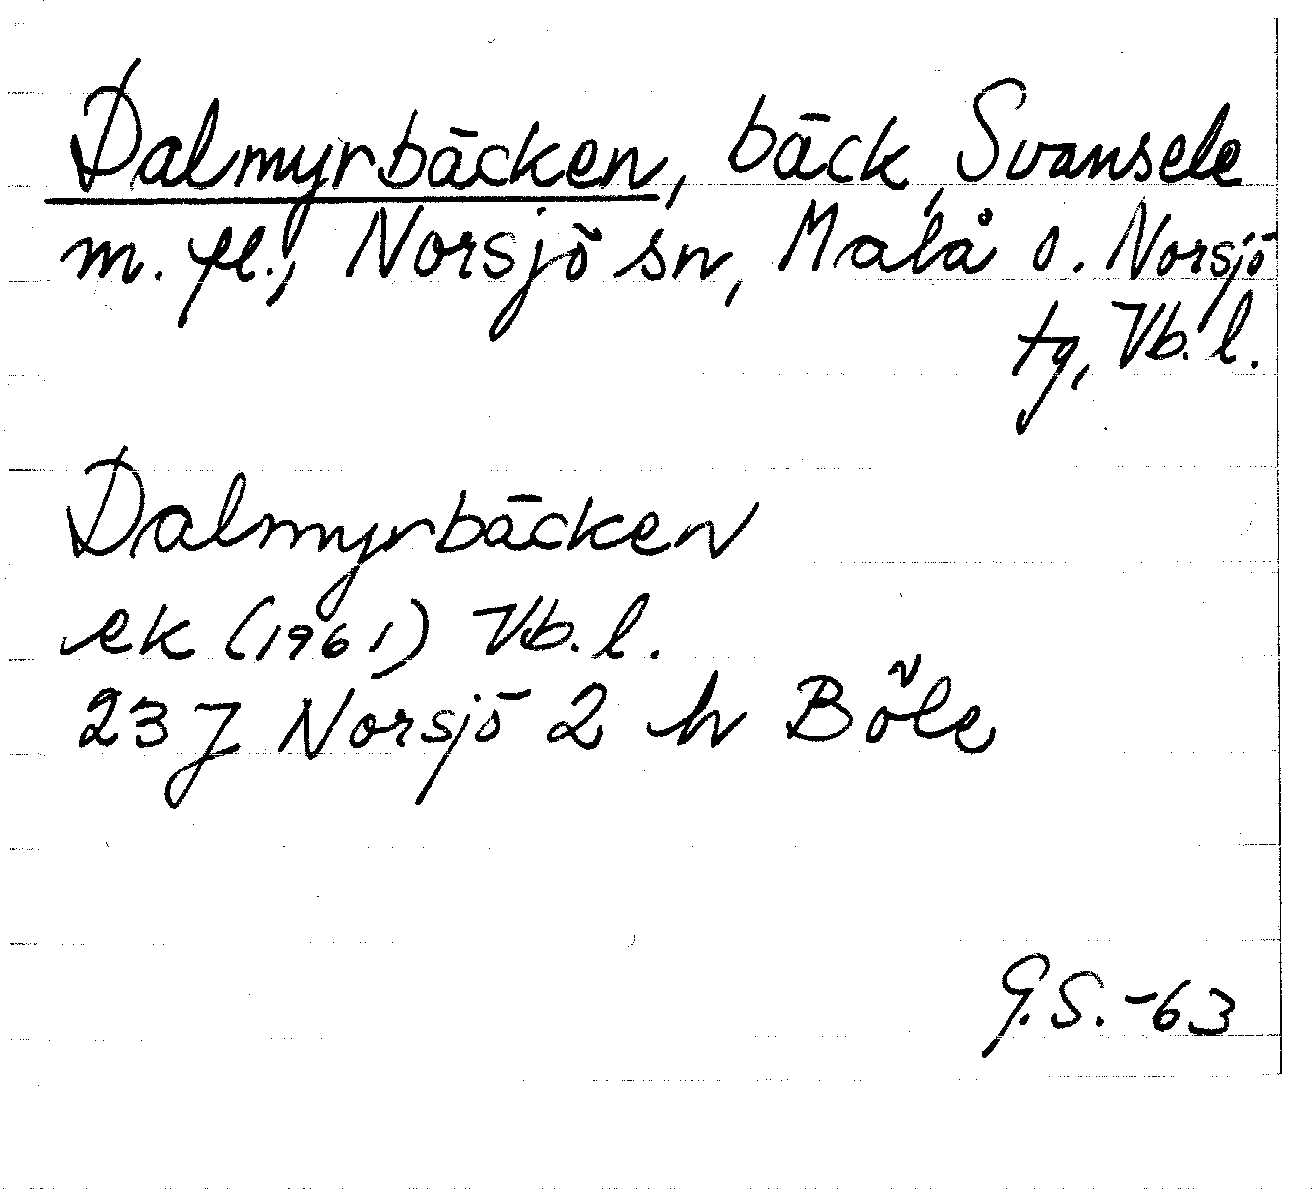 Dalmyrbäcken, bäck, Svansele
m. fl., Norsjö sn, Malå o. Norsjö
tg, Vb. l.
Dalmyrbäcken
ek (1961) Vb. l.
23 J Norsjö 2 h Böle
G.S. -63